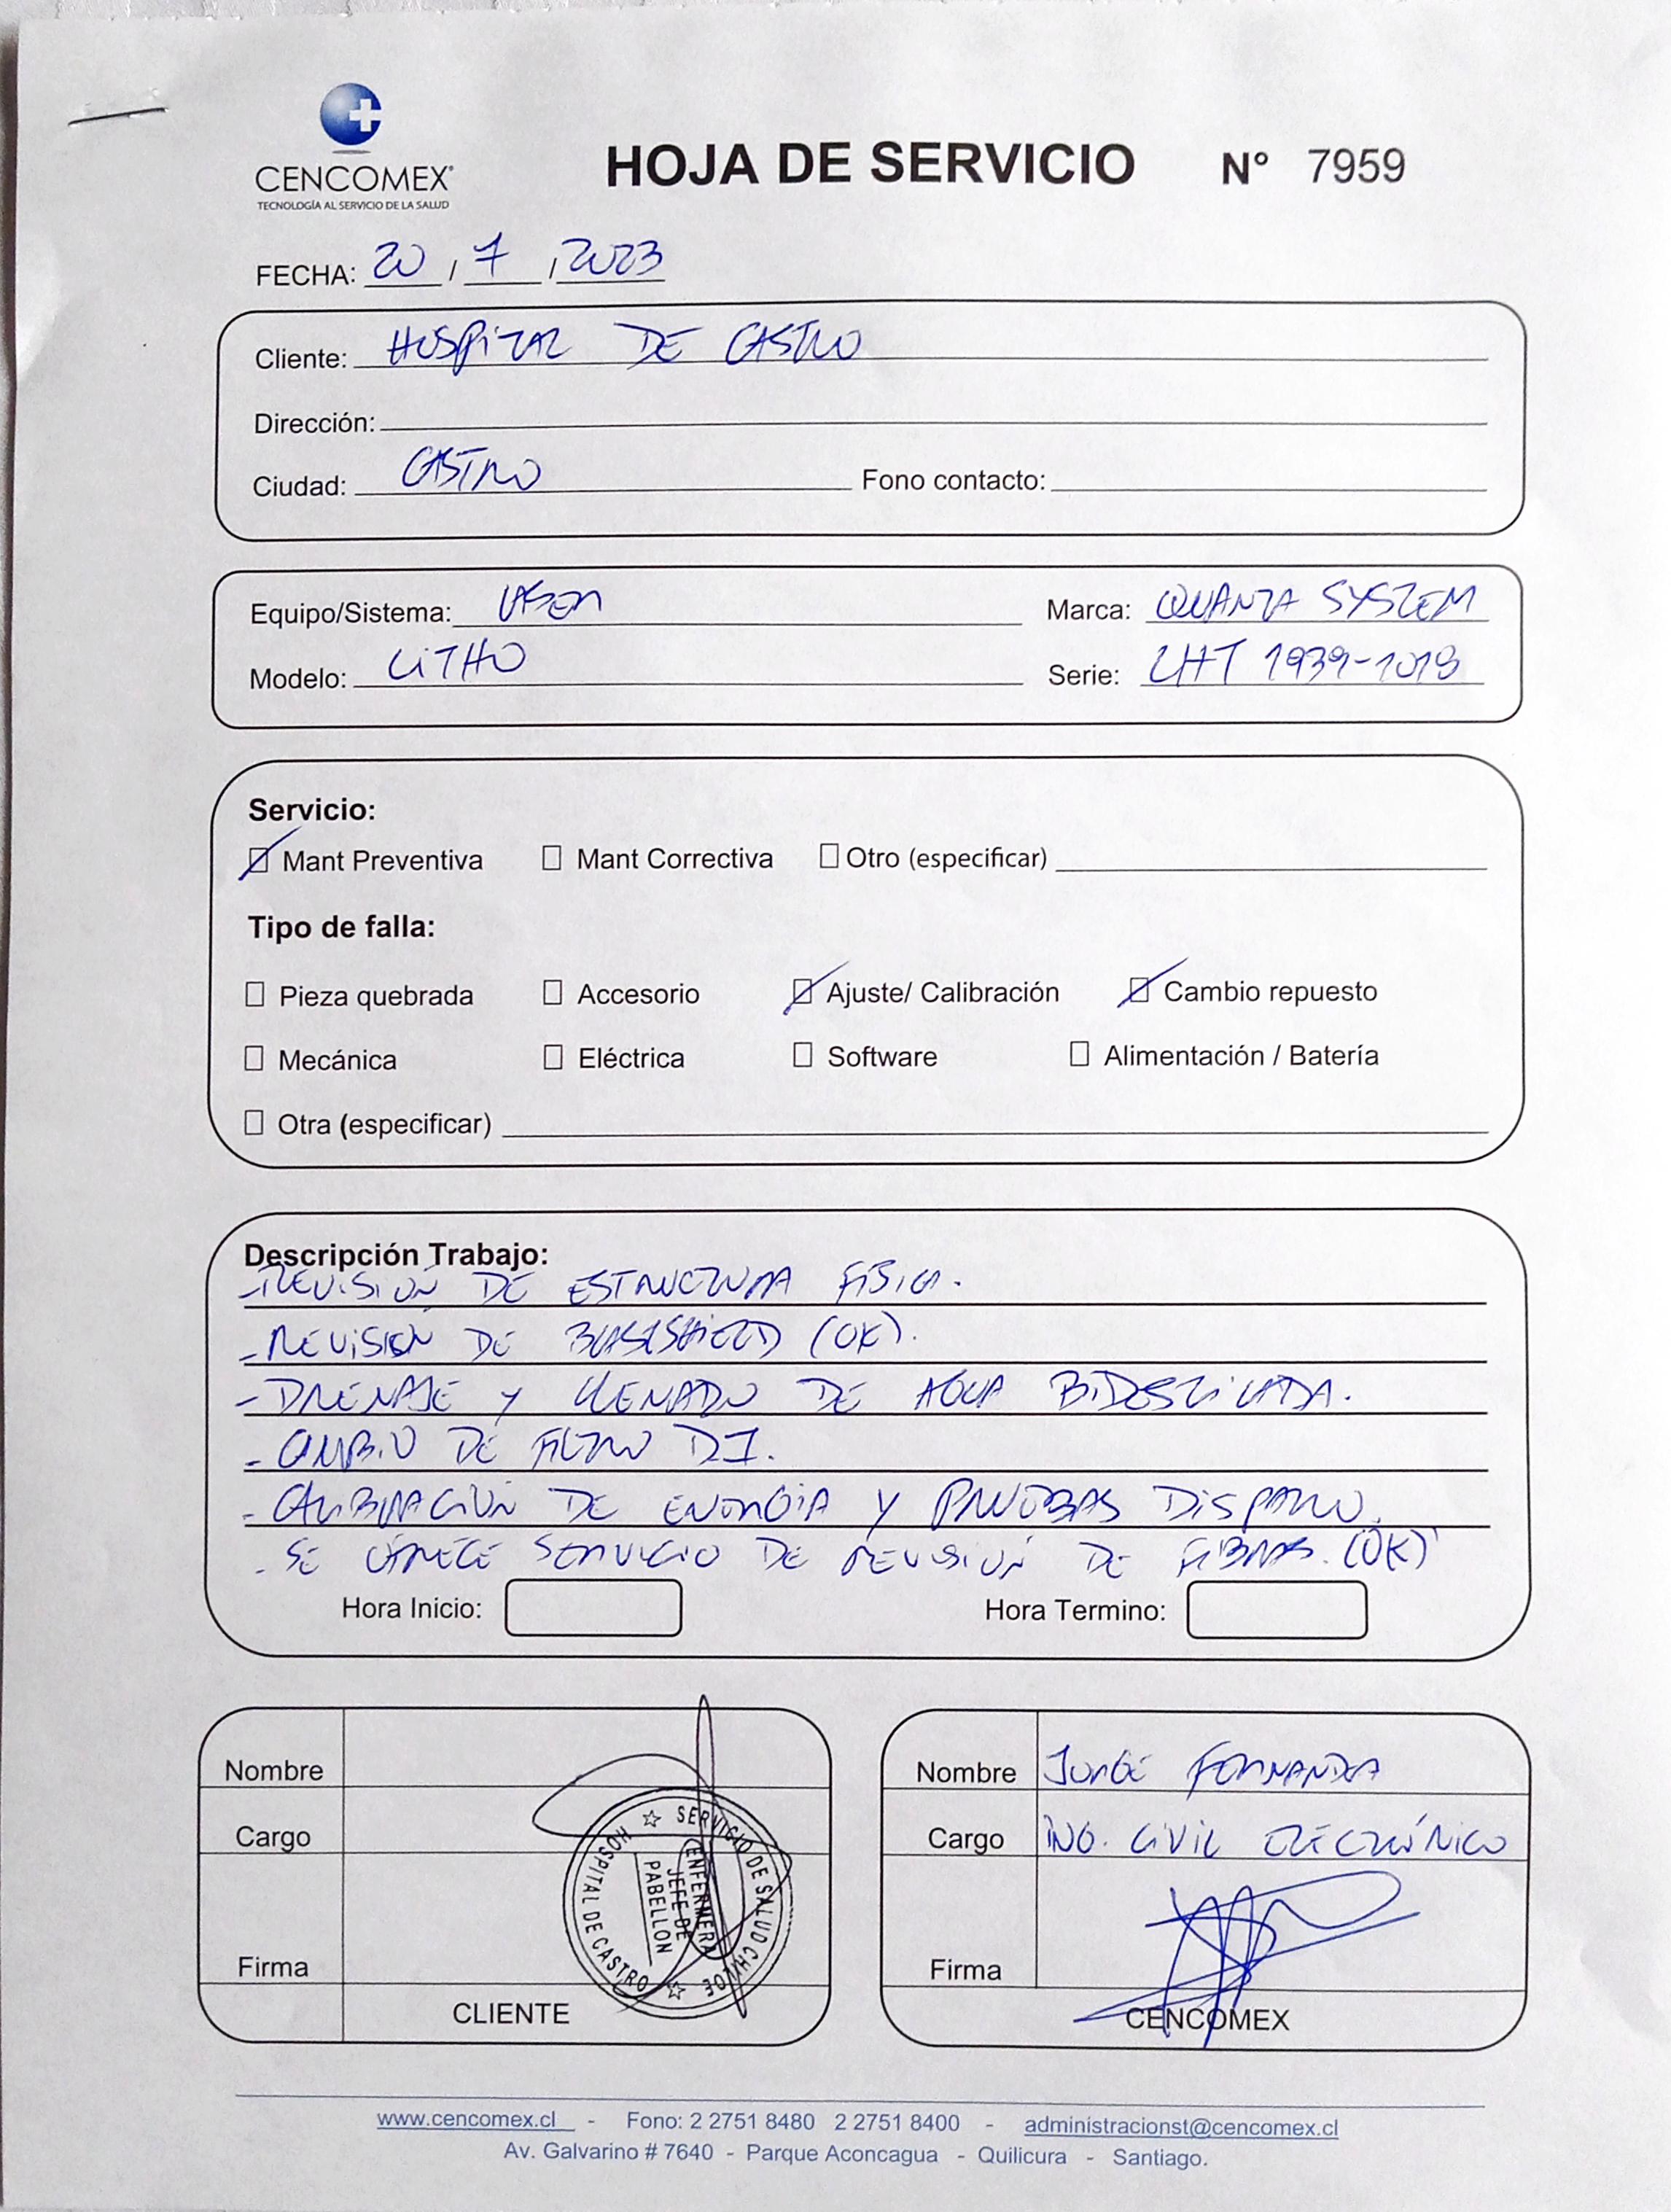 CENCOMEX
TECNOLOGÍA AL SERVICIO DE LA SALUD
HOJA DE SERVICIO N° 7959
FECHA: 20 / 7 / 2023
Cliente: HOSPITAL DE CASTRO
Dirección:
Ciudad: CASTRO Fono contacto:
Equipo/Sistema: LASER Marca: QUANTA SYSTEM
Modelo: LITHO Serie: LHT 1939-1019
Servicio:
Mant Preventiva Mant Correctiva Otro (especificar)
Tipo de falla:
Pieza quebrada Accesorio Ajuste/ Calibración Cambio repuesto
Mecánica Eléctrica Software Alimentación / Batería
Otra (especificar)
Descripción Trabajo:
- REVISIÓN DE ESTRUCTURA FÍSICA.
- REVISIÓN DE BLASTSHIELD (OK).
- DRENAJE Y LLENADO DE AGUA BIDESTILADA.
- CAMBIO DE FILTRO DI.
- CALIBRACIÓN DE ENERGÍA Y PRUEBAS DISPARO.
- SE OFRECE SERVICIO DE REVISIÓN DE FIBRAS. (OK)
Hora Inicio: Hora Termino:
Nombre
Cargo
Firma
CLIENTE
SERVICIO DE SALUD CHILOE
HOSPITAL DE CASTRO
ENFERMERA
JEFE DE
PABELLON
Nombre JORGE FERNANDEZ
Cargo ING. CIVIL ELECTRÓNICO
Firma
CENCOMEX
www.cencomex.cl - Fono: 2 2751 8480 2 2751 8400 - administracionst@cencomex.cl
Av. Galvarino # 7640 - Parque Aconcagua - Quilicura - Santiago.